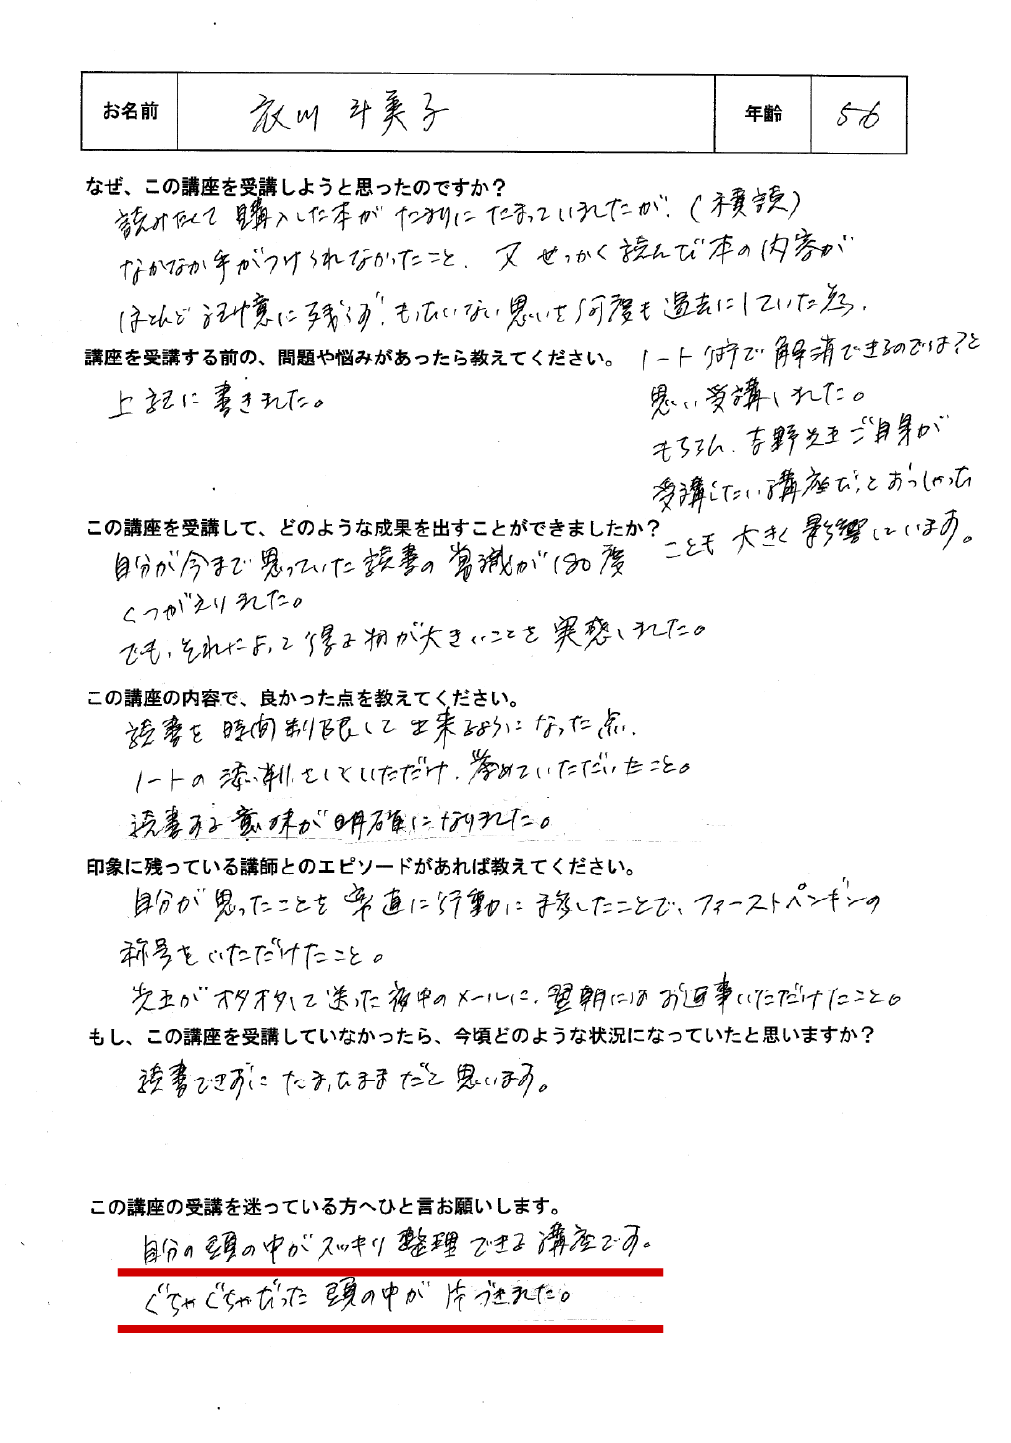 お名前 衣川 斗美子 年齢 56
なぜ、この講座を受講しようと思ったのですか？
読みたくて購入した本がたまりにたまっていましたが、(積読)
なかなか手がつけられなかったこと、又せっかく読んだ本の内容が
ほとんど記憶に残らず、もったいない思いを何度も過去にしていた為、
ノート術で解消できるのでは？と
思い受講しました。
もちろん、吉野先生ご自身が
受講したい講座だ、とおっしゃった
ことも大きく影響しています。
講座を受講する前の、問題や悩みがあったら教えてください。
上記に書きました。
この講座を受講して、どのような成果を出すことができましたか？
自分が今まで思っていた読書の常識が180度
くつがえりました。
でも、それによって得る物が大きいことを実感しました。
この講座の内容で、良かった点を教えてください。
読書を時間制限して出来るようになった点、
ノートの添削をしていただけ、誉めていただいたこと。
読書する意味が明確になりました。
印象に残っている講師とのエピソードがあれば教えてください。
自分が思ったことを素直に行動に移したことで、ファーストペンギンの
称号をいただけたこと。
先生がオタオタして送った夜中のメールに、翌朝にはお返事いただけたこと。
もし、この講座を受講していなかったら、今頃どのような状況になっていたと思いますか？
読書できずにたまったままだと思います。
この講座の受講を迷っている方へひと言お願いします。
自分の頭の中がスッキリ整理できる講座です。
ぐちゃぐちゃだった頭の中が片づきました。